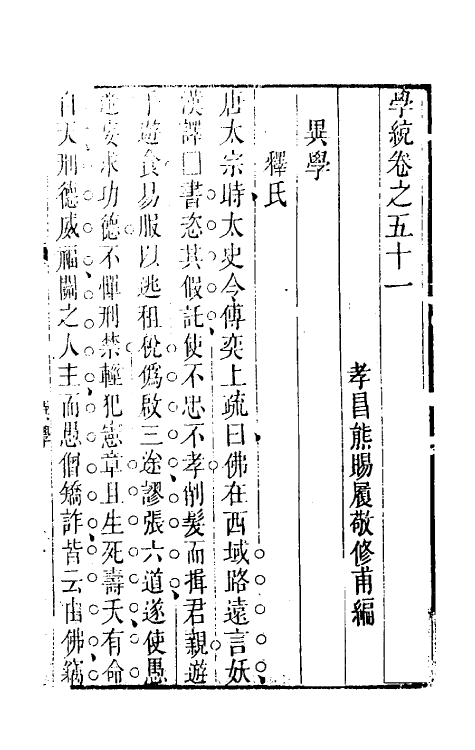 學統卷之五十一
孝昌熊賜履敬修甫編
異學
釋氏
唐太宗時太史令傅奕上疏曰佛在西域路遠言妖
漢譯□書恣其假託使不忠不孝削髮而揖君親遊
手遊食易服以逃租稅偽啟三塗謬張六道遂使愚
迷妄求功德不憚刑禁輕犯憲章且生死壽夭有命
自天刑德威福關之人主而愚僧矯詐皆云由佛竊
異學